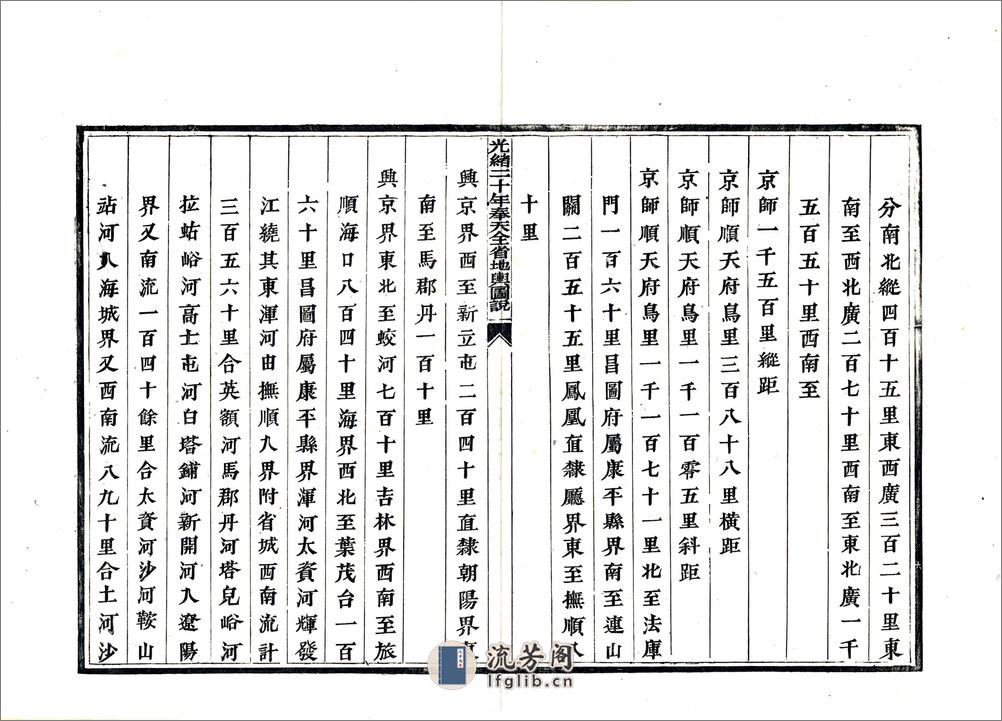 分南北縱四百十五里東西廣三百二十里東
南至西北廣二百七十里西南至東北廣一千
五百五十里西南至
京師一千五百里縱距
京師順天府鳥里三百八十八里橫距
京師順天府鳥里一千一百零五里斜距
京師順天府鳥里一千一百七十一里北至法庫
門一百六十里昌圖府屬康平縣界南至連山
關二百五十五里鳳凰直隸廳界東至撫順八
十里
光緒二十年奉天全省地輿圖說
興京界西至新立屯二百四十里直隸朝陽界東
南至馬郡丹一百十里
興京界東北至蛟河七百十里吉林界西南至旅
順海口八百四十里海界西北至葉茂台一百
六十里昌圖府屬康平縣界渾河太資河輝發
江繞其東渾河由撫順入界附省城西南流計
三百五六十里合英額河馬郡丹河塔兒峪河
拉蛄峪河高士屯河白塔鋪河新開河入遼陽
界又南流一百四十餘里合太資河沙河鞍山
站河入海城界又西南流八九十里合土河沙
流芳阁
lfglib.cn